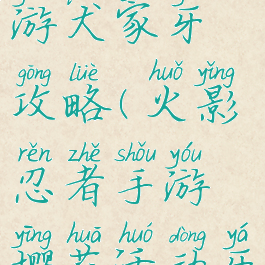 游犬家牙
gōng lüè huǒ yǐng
攻略(火影
rěn zhě shǒu yóu
忍者手游
yīng huā huó dòng yá
樱花活动牙